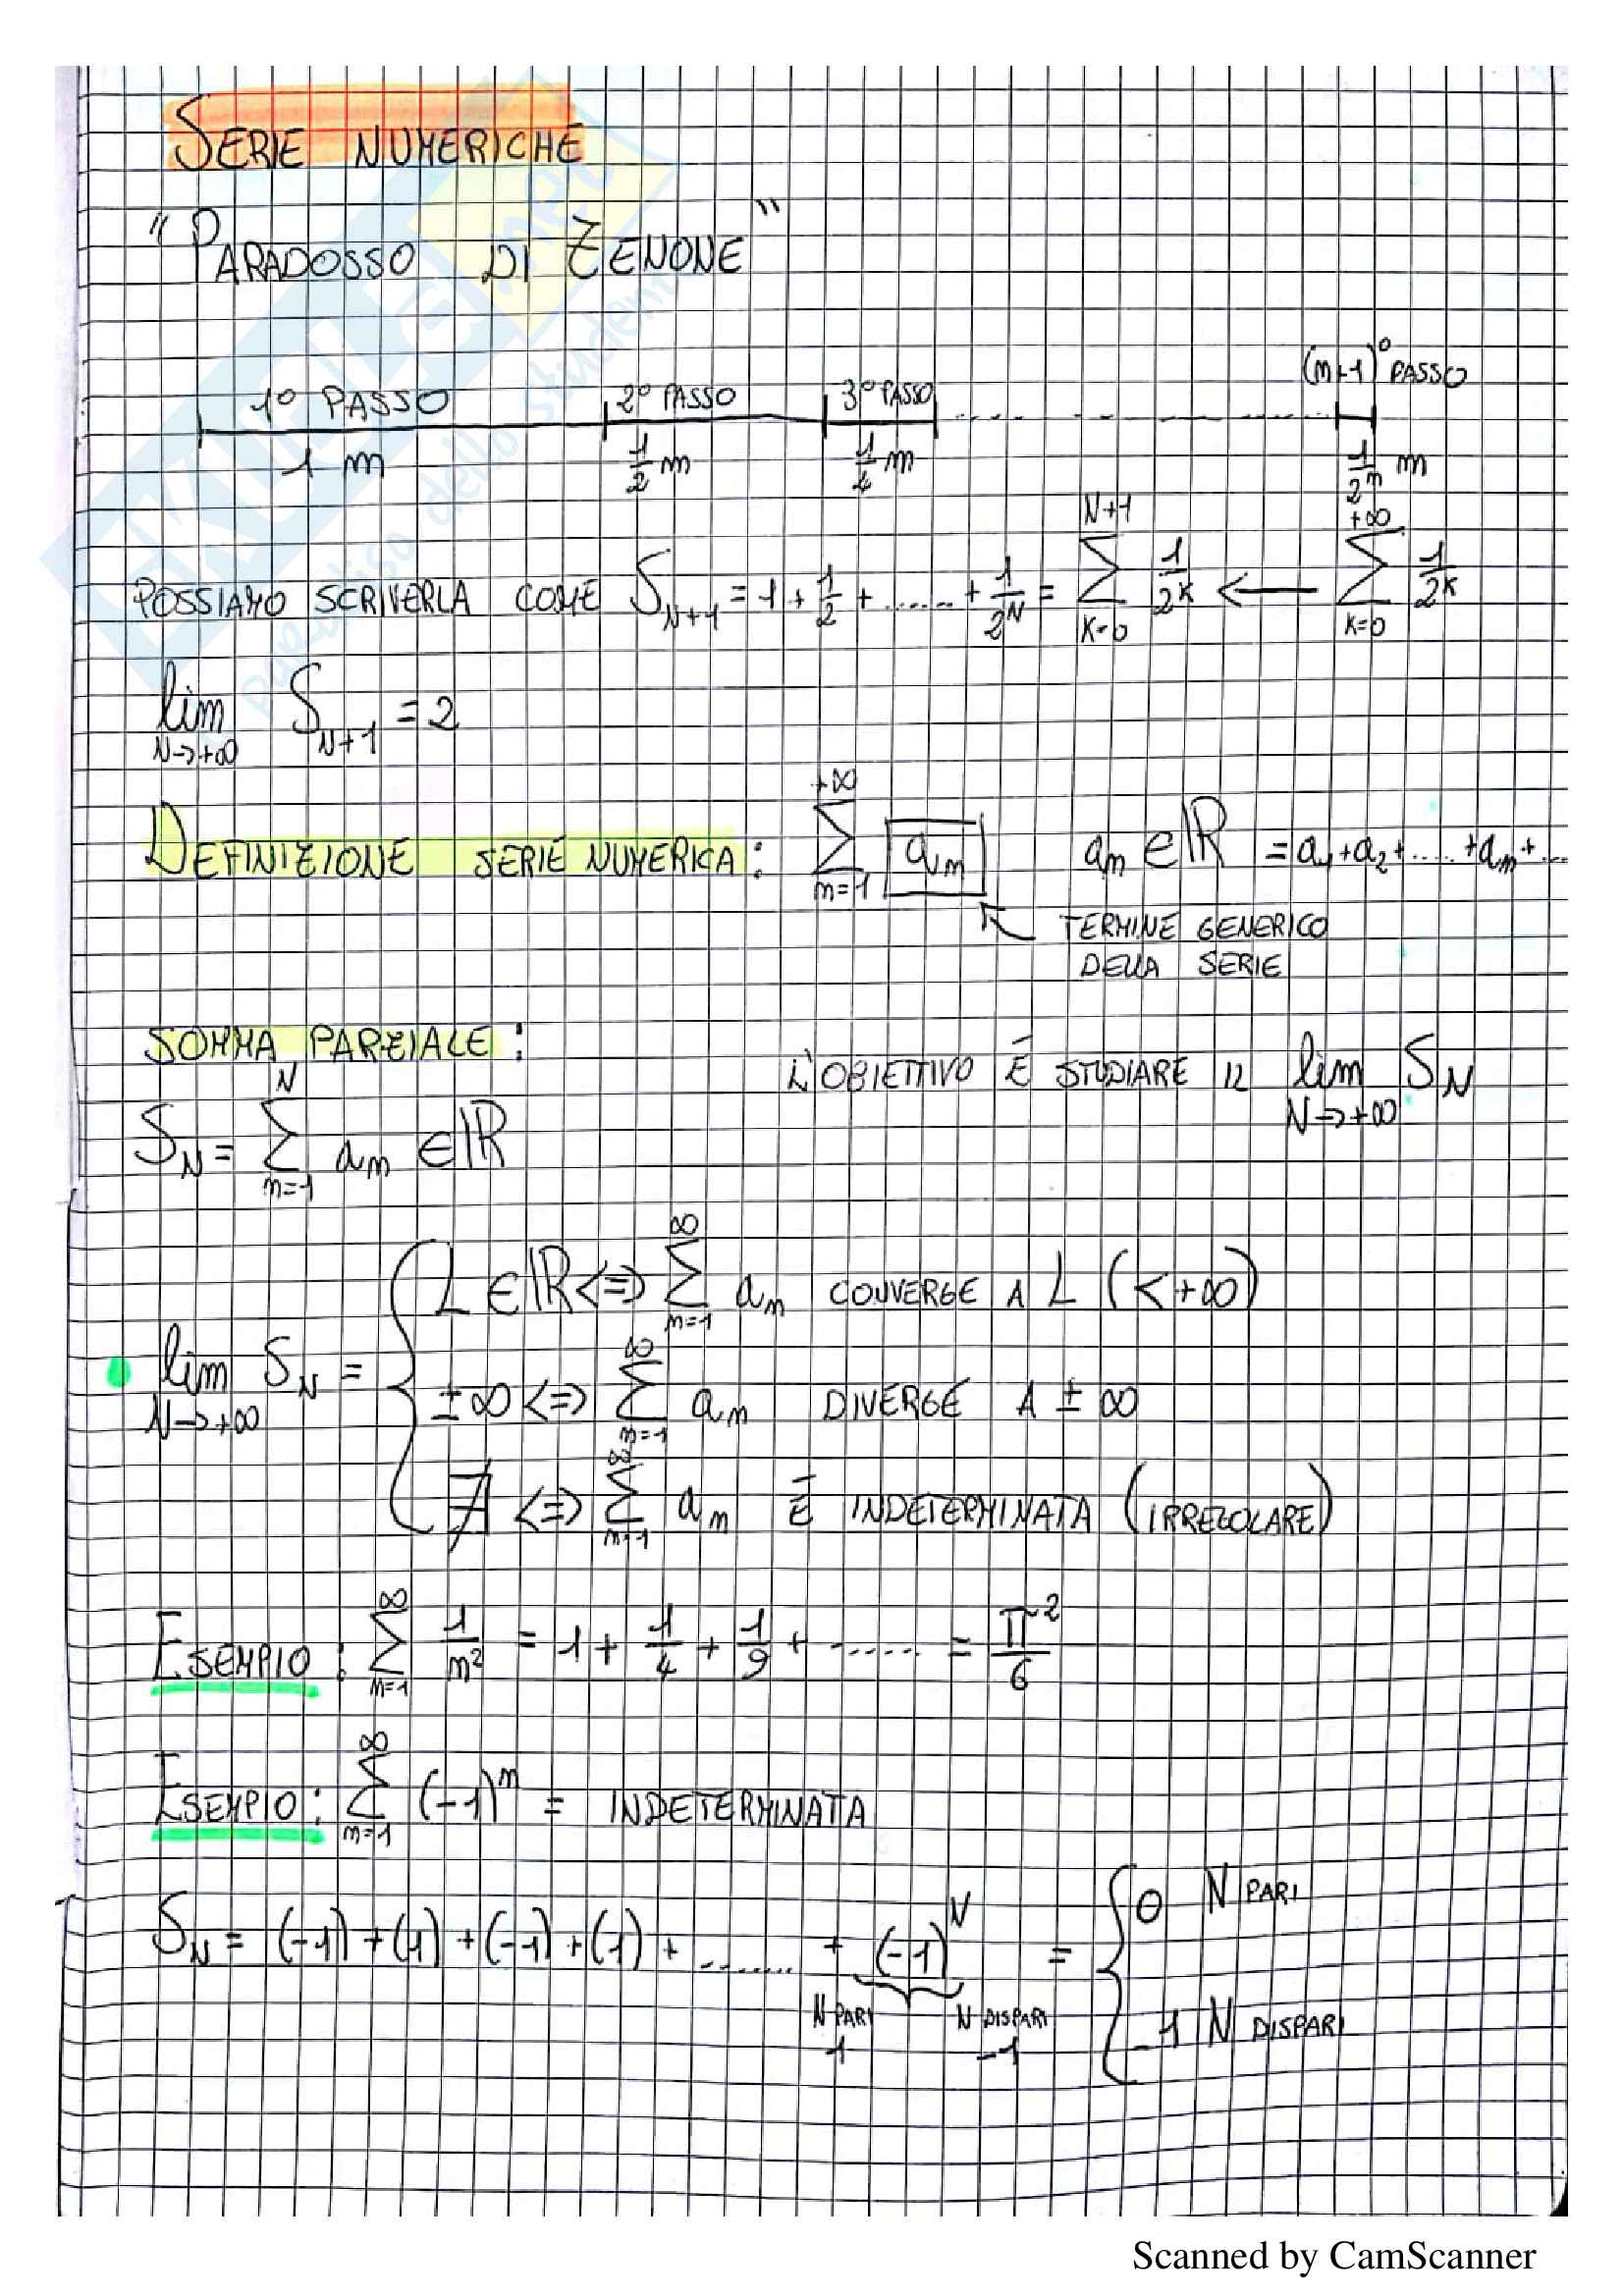 SERIE NUMERICHE
"PARADOSSO DI ZENONE"
(n+1)° PASSO
1° PASSO 2° PASSO 3° PASSO
1 m 1/2 m 1/4 m 1/2^n m
POSSIAMO SCRIVERLA COME S_{N+1} = 1 + 1/2 + ...... + 1/2^N = \sum_{K=0}^{N+1} 1/2^K ⟵ \sum_{K=0}^{+∞} 1/2^K
lim_{N→+∞} S_{N+1} = 2
DEFINIZIONE SERIE NUMERICA: \sum_{n=1}^{+∞} a_n a_n ∈ ℝ = a_1 + a_2 + ..... + a_n + ...
TERMINE GENERICO
DELLA SERIE
SOMMA PARZIALE:
L'OBIETTIVO É STUDIARE IL lim_{N→+∞} S_N
S_N = \sum_{n=1}^{N} a_n ∈ ℝ
lim_{N→+∞} S_N = {
L ∈ ℝ <=> \sum_{n=1}^{∞} a_n CONVERGE A L (< +∞)
± ∞ <=> \sum_{n=1}^{∞} a_n DIVERGE A ± ∞
∄ <=> \sum_{n=1}^{∞} a_n É INDETERMINATA (IRREGOLARE)
ESEMPIO: \sum_{n=1}^{∞} 1/n² = 1 + 1/4 + 1/9 + ...... = π²/6
ESEMPIO: \sum_{n=1}^{∞} (-1)^n = INDETERMINATA
S_N = (-1) + (1) + (-1) + (1) + ........ + (-1)^N = { 0 N PARI
N PARI N DISPARI
1 -1
-1 N DISPARI
SKUOLA.net
paradiso dello studente
Scanned by CamScanner